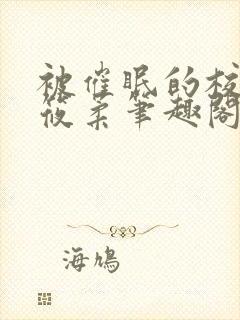 被催眠的校
筱柔笔趣阁
海鸠